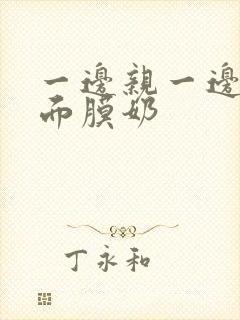 一邊親一邊
而膜奶
丁永和